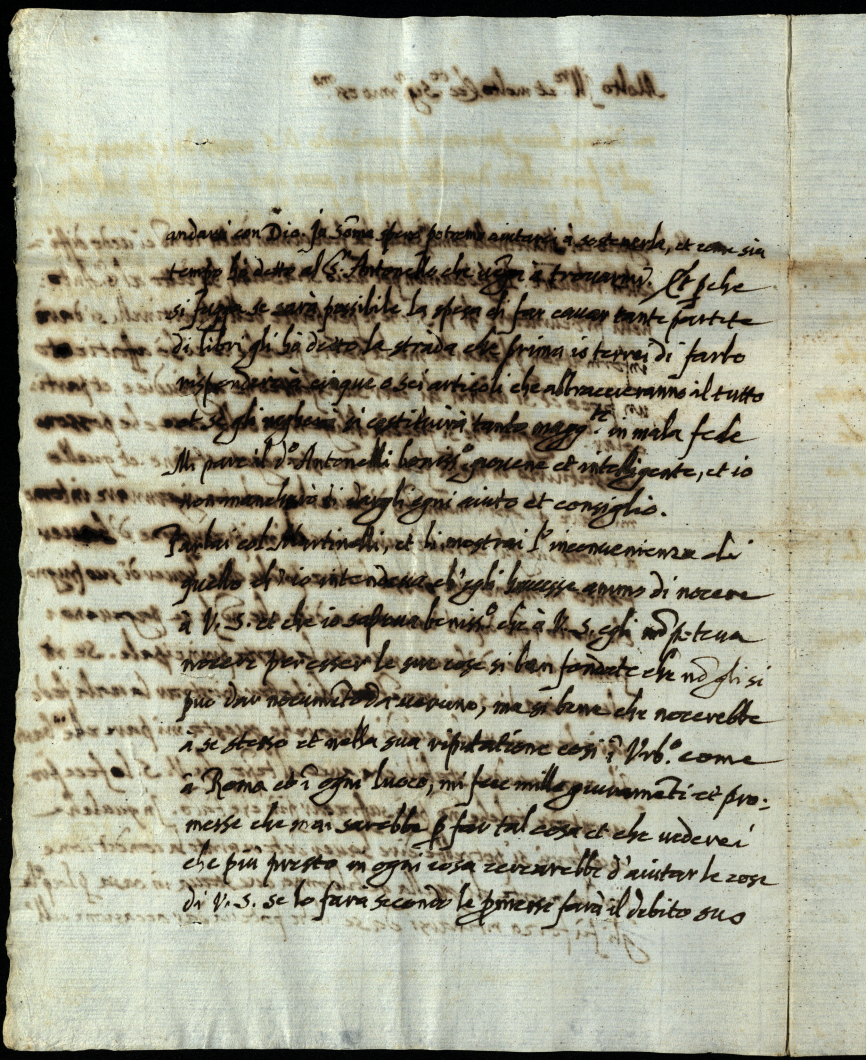 andarsi con Dio. In sõma spero potremo aiutarci à sostenerla, et come sia
tempo hà detto al S.r Antonello che uẽga à trouarmi. Et p̱che
si fugga se sarà possibile la spesa di far cauar tante partite
di libri gli hà detto la strada che prima io terrei di farlo
rispondere à cinque o sei articoli che abbraccieranno il tutto
et se gli negherà si costituirà tanto magg.te in mala fede
Mi pare il d.o Antonelli boniss.o giouene et intelligente, et io
non mancherò di dargli ogni aiuto et consiglio.
Parlai col Martinelli, et li mostrai l'inconuenienza di
quello ch'io intendeua ch'egli hauesse animo di nocere
à V. S. et che io sapeua beniss.o che à V. S. egli nõ poteua
nocere per esser le sue cose si ben fondate che nõ gli si
puo dar nocumẽto ueruno, ma si bene che nocerebbe
à se stesso et nella sua riputatione cosi ĩ Vrb.o come
à Roma et ĩ ogni luoco, mi fece mille giuramẽti et pro:
messe che mai sarebbe p̱ far tal cosa et che uederei
che più presto in ogni cosa cercarebbe d'aiutar le cose
di V. S. se lo farà secondo le p̱messe farà il debito suo